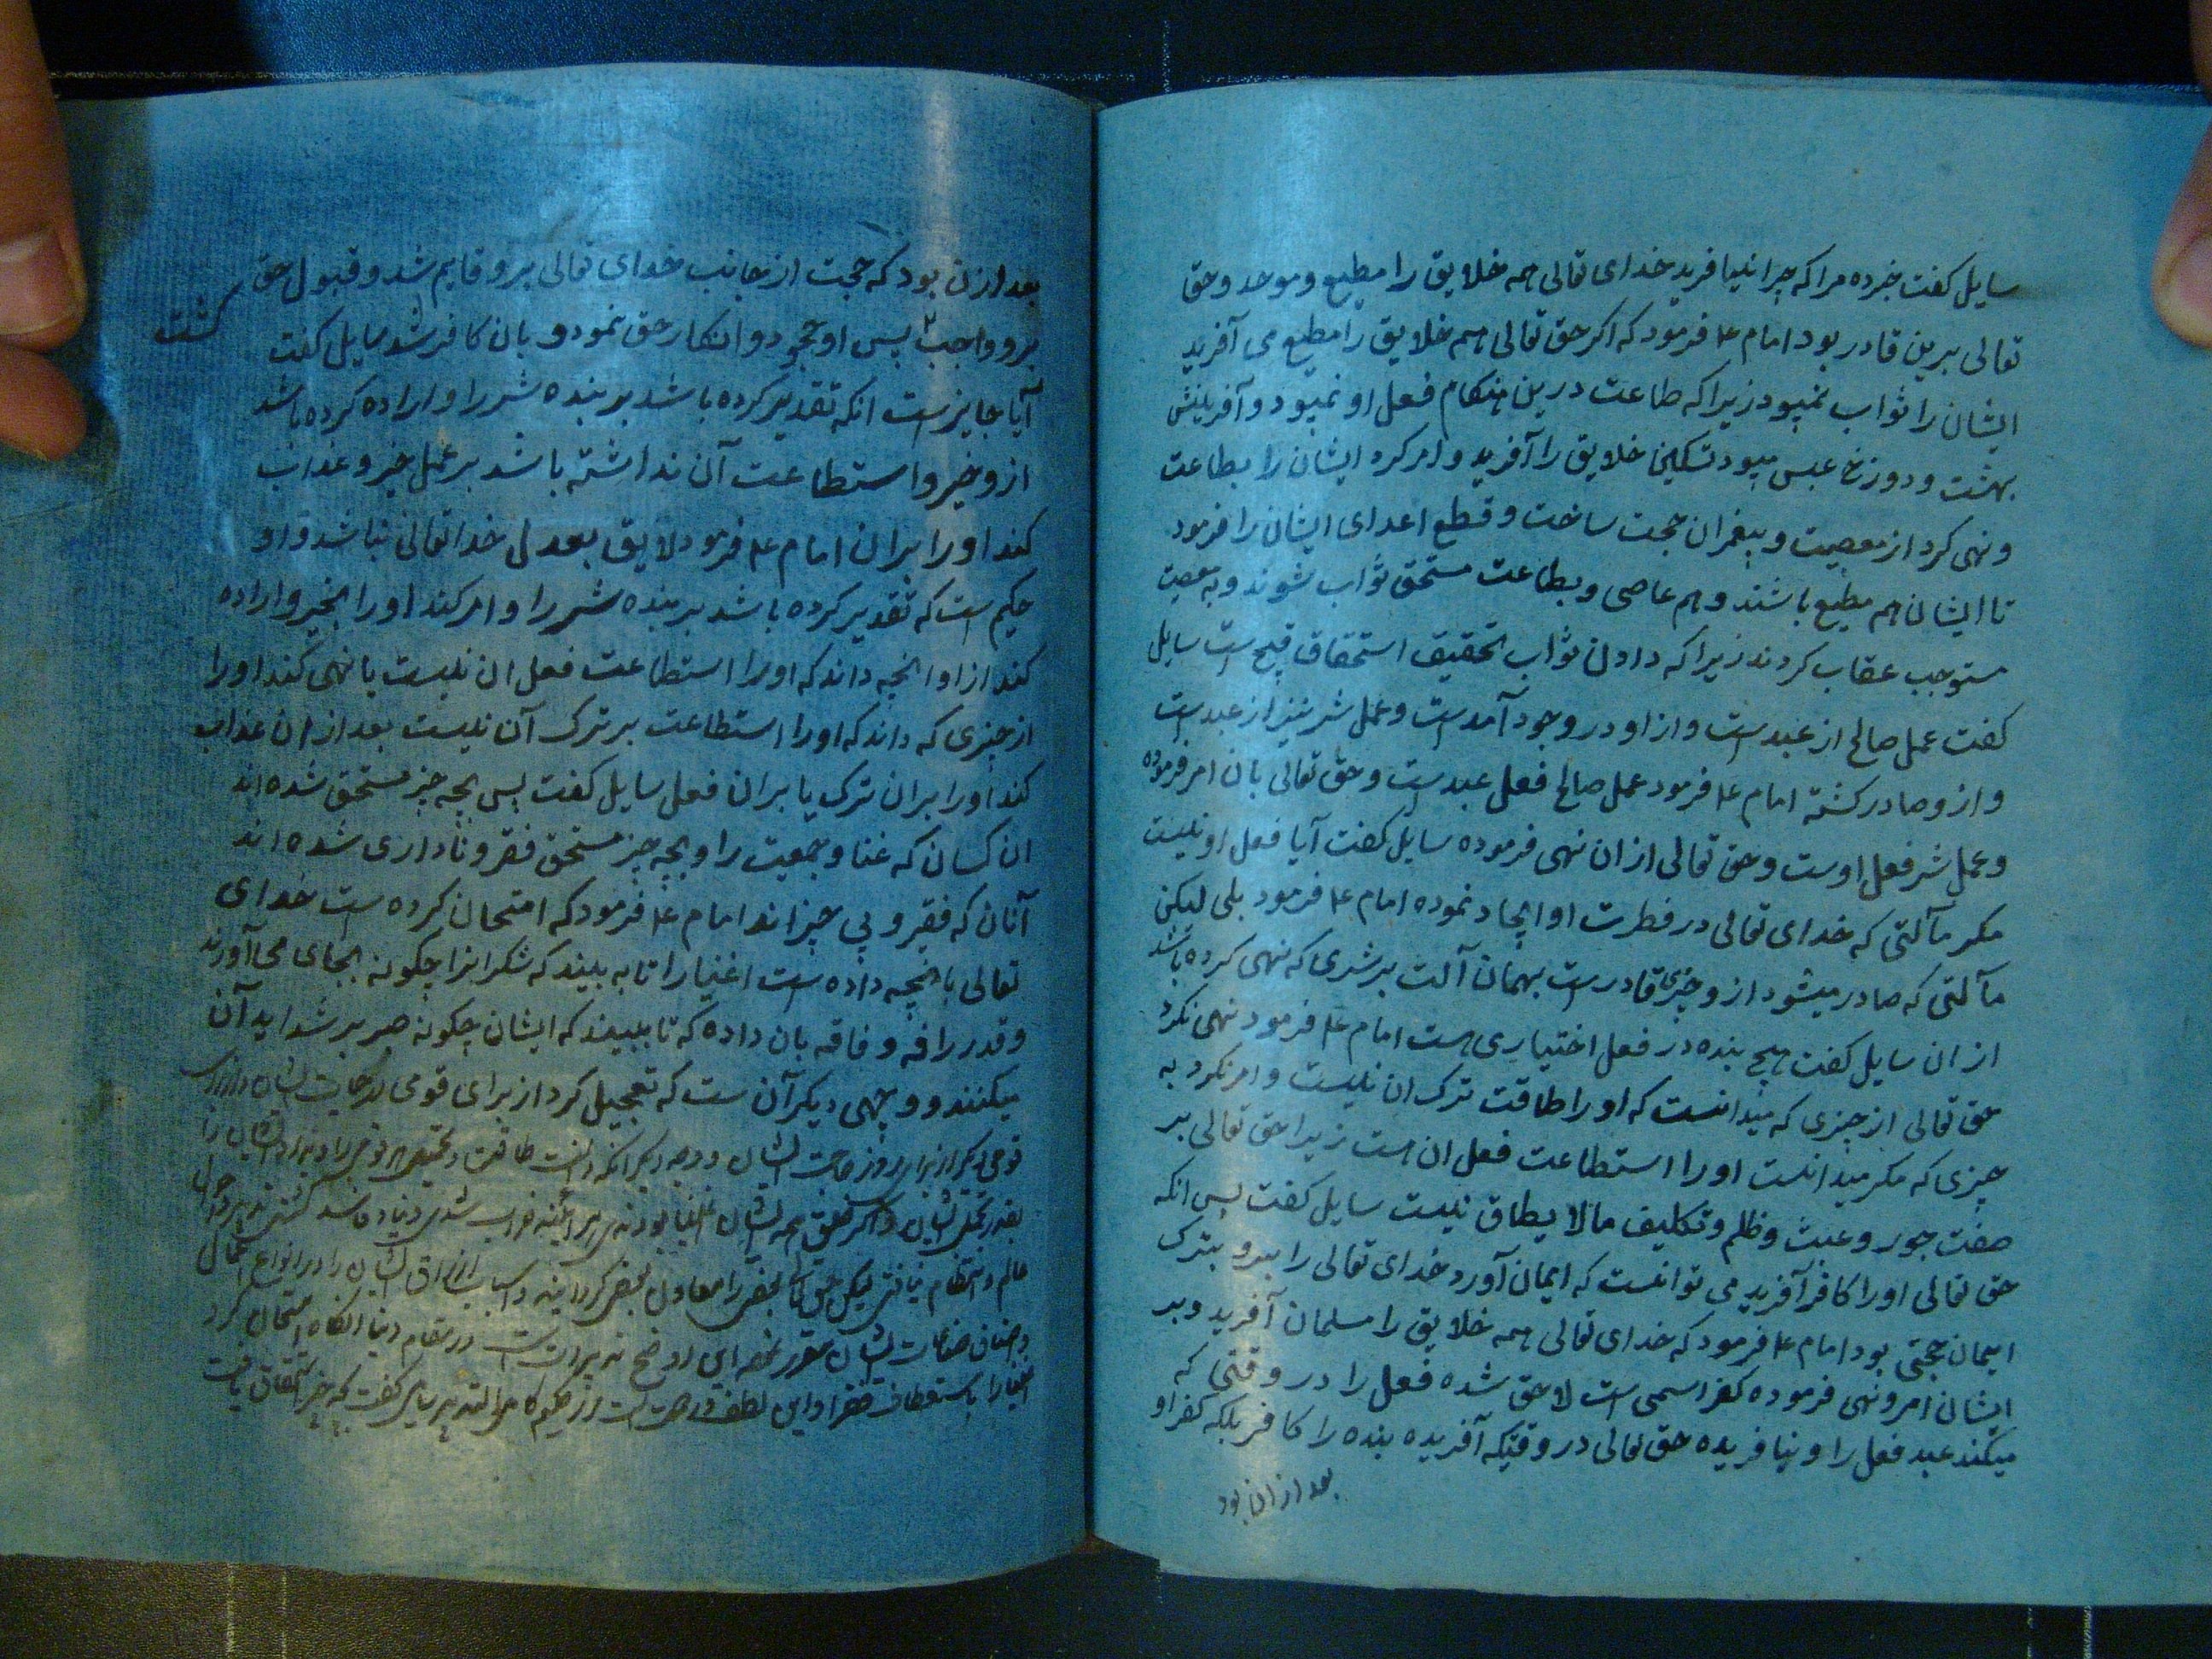 سایل کفت خبرده مرا که چرا نیافرید خدای تعالی همه خلایق را مطیع و موحد و حق
تعالی برین قادر بود امام ع فرمود که اکر حق تعالی همه خلایق را مطیع می آفرید
ایشان را ثواب نمیبود زیرا که طاعت درین هنکام فعل او نمیبود و آفرینش
بهشت و دوزخ عبس میبود لیکن خلایق را آفرید و امر کرد ایشان را بطاعت
و نهی کرد از معصیت و پیغمران حجت ساخت و قطع اعدای ایشان را فرمود
تا ایشان هم مطیع باشند و هم عاصی و بطاعت مستحق ثواب شوند و به معصیت
مستوجب عقاب کردند زیرا که دادن ثواب تحقیق استحقاق قبیح است سایل
کفت عمل صالح از عبد است و از او در وجود آمده است و عمل شر نیز از عبد است
و ازو صادر کشته امام ع فرمود عمل صالح فعل عبد ست و حق تعالی بان امر فرموده
و عمل شر فعل اوست و حق تعالی ازان نهی فرموده سایل کفت آیا فعل او نیست
مکر مآلتی که خدای تعالی در فطرت او ایجاد نموده امام ع فرمود بلی لیکن
مآلتی که صادر میشود ازو خیر قادر ست بهمان آلت بر شری که نهی کرده باشد
ازان سایل کفت هیچ بنده در فعل اختیاری هست امام ع فرمود نهی نکرد
حق تعالی از چیزی که میدانست که او را طاقت ترک ان نیست و امر نکرد به
چیزی که مکر میدانست او را استطاعت فعل ان هست زیرا حق تعالی بر
صفت جور و عبث و ظلم و تکلیف مالا یطاق نیست سایل کفت پس انکه
حق تعالی او را کافر آفرید می توانست که ایمان آورد خدای تعالی را برو بترک
ایمان حجتی بود امام ع فرمود که خدای تعالی همه خلایق را مسلمان آفرید و بر
ایشان امر و نهی فرموده کفر اسمی است لاحق شده فعل را در وقتی که
میکند عبد فعل را و نیافریده حق تعالی در وقتیکه آفریده بنده را کافر بلکه کفر او
بعد ازان بود
بعد ازان بود که حجت از جانب خدای تعالی برو قایم شد و قبول حق
برو واجب کشت پس او جحود و انکار حق نمود و بان کافر شد سایل کفت
آیا جایز ست انکه تقدیر کرده باشد بر بنده شر را و اراده کرده باشد
ازو خیر و استطاعت آن نداشته باشد بر عمل خیر و عذاب
کند او را بران امام ع فرمود لایق بعدل خدا تعالی نباشد و او
حکیم ست که تقدیر کرده باشد بر بنده شر را و امر کند او را بخیر و اراده
کند ازاو انچه داند که او را استطاعت فعل ان نیست یا نهی کند او را
از چیزی که داند که او را استطاعت بر ترک آن نیست بعد ازان عذاب
کند او را بران ترک یا بران فعل سایل کفت پس بچه چیز مستحق شده اند
ان کسان که غنا و جمعیت را و بچه چیز مستحق فقر و ناداری شده اند
آنان که فقیر و بی چیز اند امام ع فرمود که امتحان کرده ست خدای
تعالی بانچه داده ست اغنیا را تا به بیند که شکر انرا چکونه بجای می آورند
و قدر را فه و فاقه بان داده که تا ببیند که ایشان چکونه صبر بر شداید آن
میکنند و وجهی دیکر آن ست که تعجیل کرد از برای قومی در حیات ایشان و از برای
قومی دیکر از برای روز حاجت ایشان و وجه دیکر انکه دانست طاقت و تحمل هر قومی را
بقدر تحمل ایشان و اکر خلق همه ایشان اغنیا بودند هر آینه خراب شدی دنیا و فاسد کشتی تدبیر و
عالم و انتظام نیافتی لیکن حق تعالی بعضی را معاون بعضی کردانیده و اسباب ارزاق ایشان را در انواع اعمال
و اصناف صناعات ایشان مقرر نموده
اغنیا را باستعطاف فقرا و این لطف و رحمت ست از حکیم